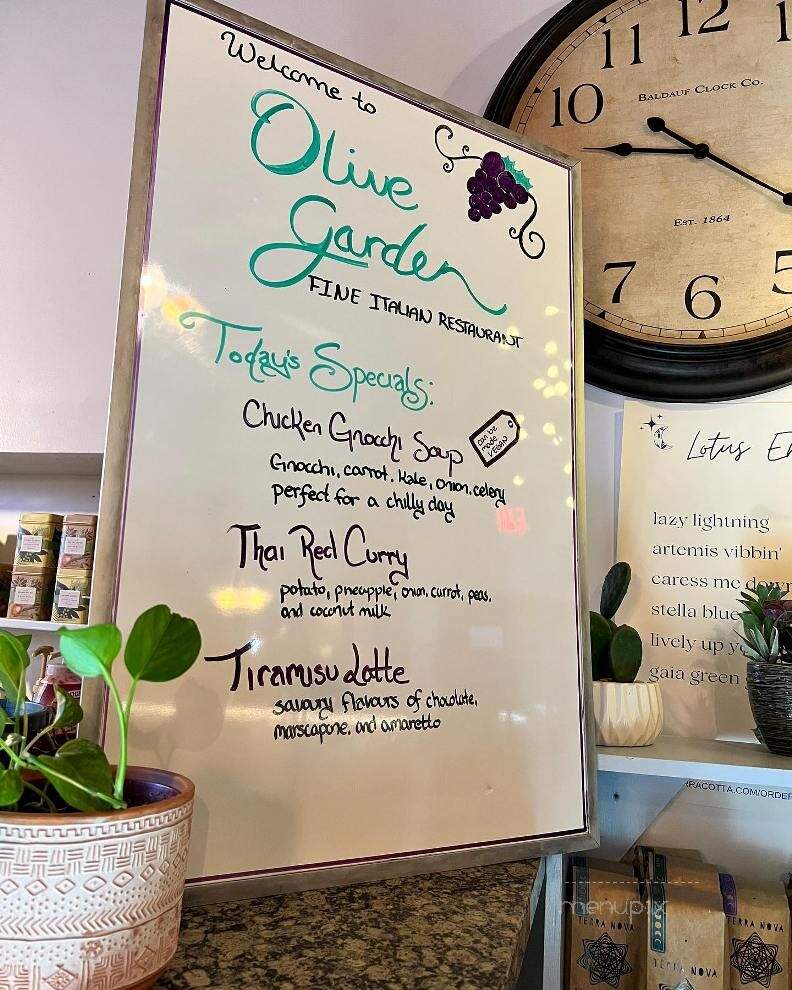 Welcome to
Olive
Garden
FINE ITALIAN RESTAURANT
Today's Specials:
Chicken Gnocchi Soup
can be
made
VEGAN
Gnocchi, carrot, kale, onion, celery
perfect for a chilly day
Thai Red Curry
potato, pineapple, onion, carrot, peas,
and coconut milk
Tiramisu Latte
savoury flavours of chocolate,
marscapone, and amaretto
11 12
10
BALDAUF CLOCK CO.
EST. 1864
7 6 5
Lotus
lazy lightning
artemis vibbin'
caress me down
stella blue
lively up
gaia green
RRACOTTA.COM/ORDER
menupix
TERRA NOVA
TERRA NOVA
TERRA NOVA